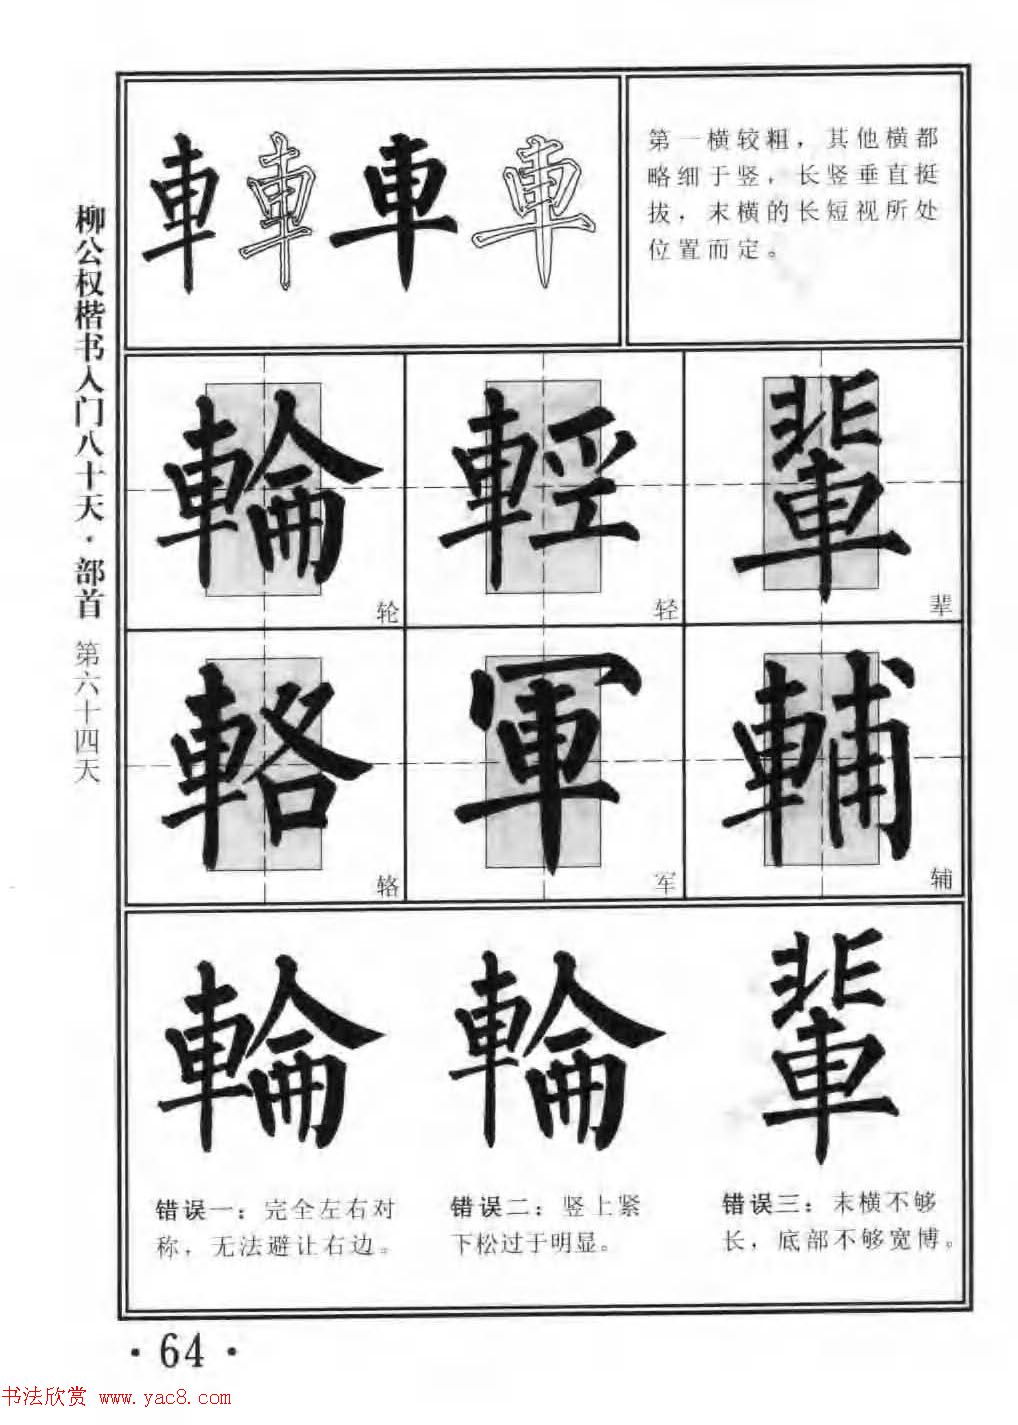 柳公权楷书入门八十天·部首 第六十四天
車 車 車 車
第一横较粗，其他横都
略细于竖，长竖垂直挺
拔，末横的长短视所处
位置而定。
輪 輕 輩
轮 轻 辈
輅 軍 輔
辂 军 辅
輪 輪 輩
错误一：完全左右对
称，无法避让右边。
错误二：竖上紧
下松过于明显。
错误三：末横不够
长，底部不够宽博。
·64·
书法欣赏 www.yac8.com